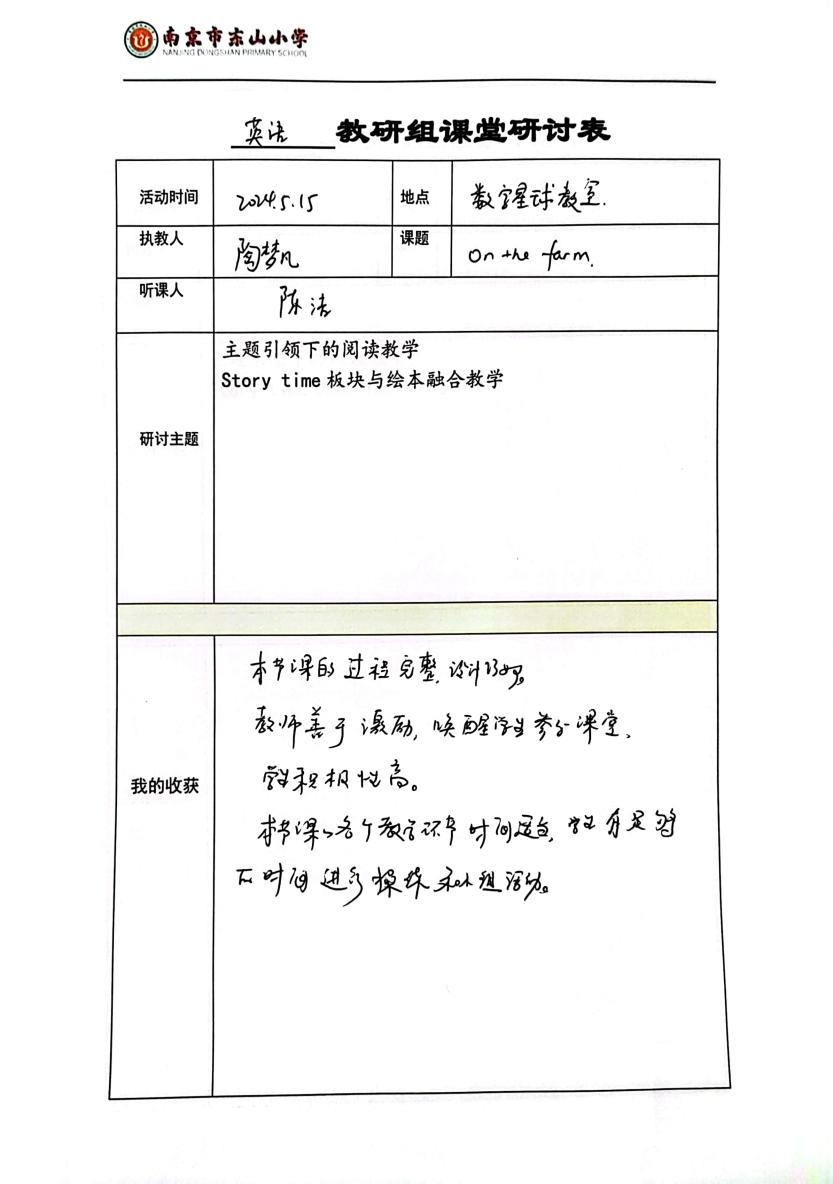 南京市东山小学
NANJING DONGSHAN PRIMARY SCHOOL
英语 教研组课堂研讨表
活动时间 2024.5.15 地点 数字星球教室.
执教人 陶梦凡 课题 On the farm.
听课人 陈洁
研讨主题
主题引领下的阅读教学
Story time 板块与绘本融合教学
我的收获
本节课的过程完整,设计巧妙。
教师善于激励,唤醒学生参与课堂、
学生积极性高。
本节课的各个教学环节时间适当,学生有足够
的时间进行操练和小组活动。